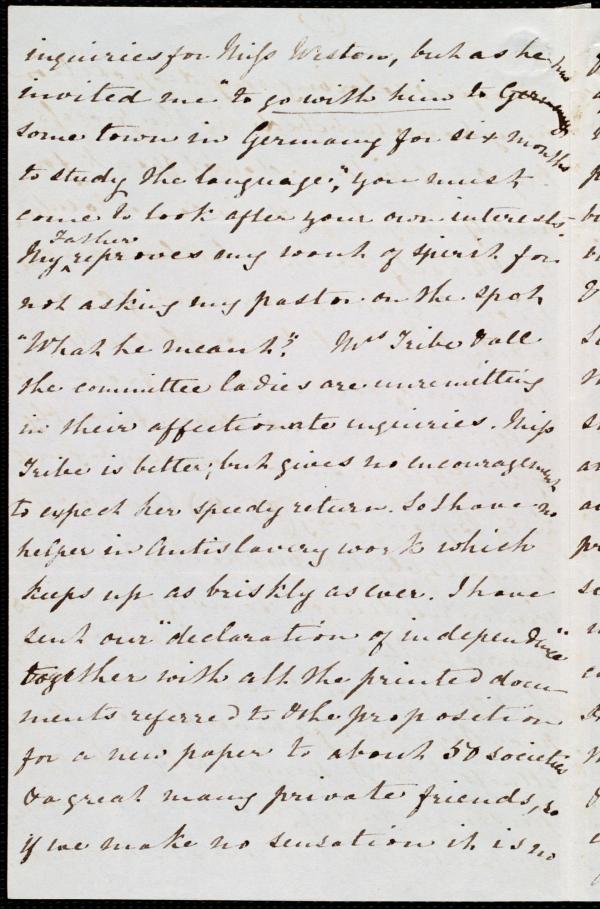 inquiries for Miss Weston, but as he has
invited me "to go with him to Germany
some town in Germany for six months
to study the language", you must
come to look after your own interests.
My Father reproves my want of spirit for
not asking my pastor on the spot,
"What he meant"? Mrs Tribe & all
the committee ladies are unremitting
in their affectionate inquiries. Miss
Tribe is better, but gives no encouragement
to expect her speedy return. So I have no
helper in Antislavery work which
keeps up as briskly as ever. I have
sent our "declaration of independence"
together with all the printed docu-
ments referred to & the proposition
for a new paper to about 50 societies
& a great many private friends, so
if we make no sensation it is no